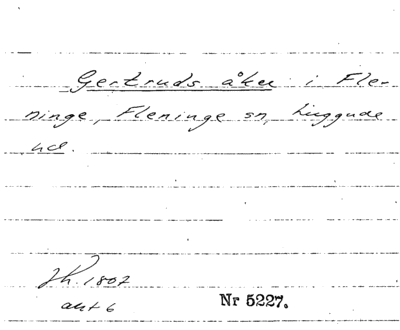 Gertruds åker i Fle-
ninge, Fleninge sn, Luggude
hd.
Jh. 1807
akt 6
Nr 5227.